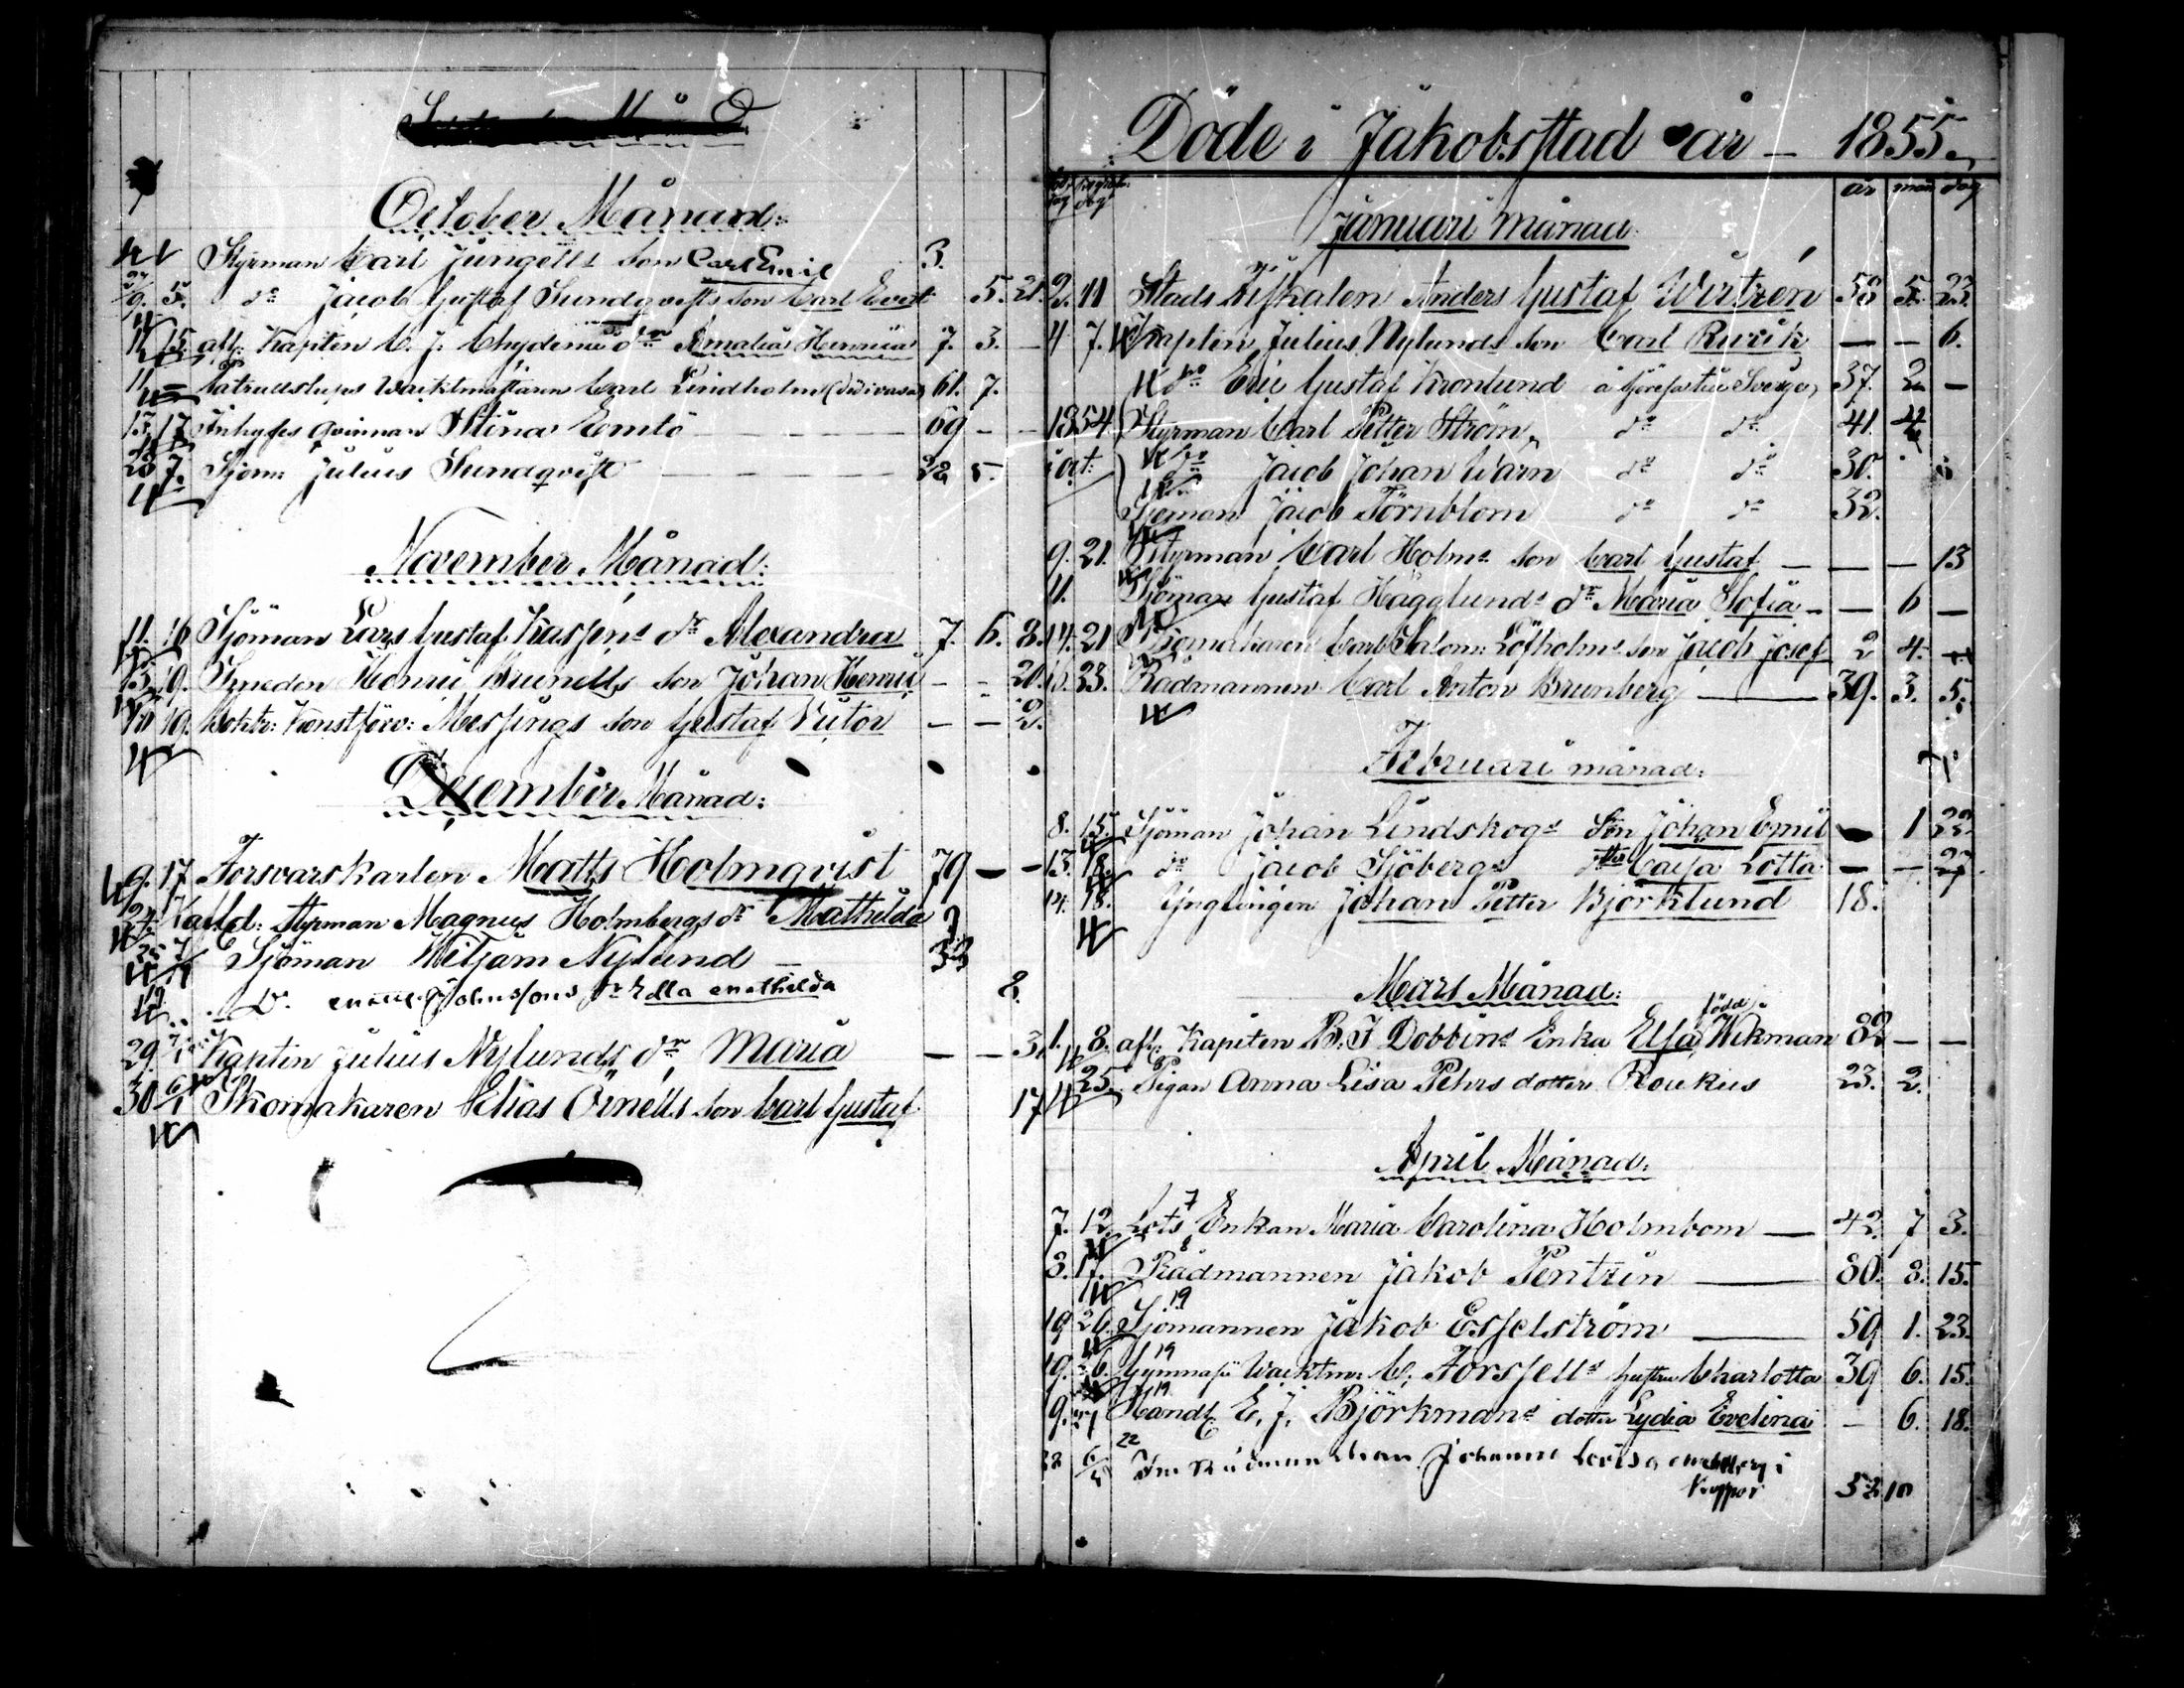 October Månad:
Styrman Carl Jungells son Carl Emil 3.
27/9. 5. do Jacob Gustaf Sundqvists son Carl Evert 5. 21.
11 15. afl: Kapiten C. J. Chydenii dr Amalia Henrica 7. 3. —
11 Waktmästaren Carl Lindholm 61. 7.
13 17. Inhyses qvinnan Stina Emtö 69 — —
23 7. Sjöm: Julius Sundqvist 22 5.
November Månad:
11. 16 Sjöman Lars Gustaf dr Alexandra 7. 6. 8.
13. 19. Smeden Henric Brunells son Johan Henric — — 20.
10 19. son Gustaf Victor — — 2.
December Månad:
9. 17 Försvarskarlen Matts Holmqvist 79 — —
afl: Styrman Magnus Holmbergs dr Mathilda
Sjöman Wiljam Nylund — 33
D. Johnssons dr Edla Mathilda 8.
29. Kapten Julius Nylunds dr Maria — — 3.
30 6/1 Skomakaren Elias Örnells son Carl Gustaf 17
Döde i Jakobsstad år — 1855.
år mån dag
Januari månad
2. 11 Stads Fiskalen Anders Gustaf Wirtzén 58 5. 23.
4 7. Kapten Julius Nylunds son Carl Rurik — — 6.
do Eric Gustaf Kronlund å Sverge 37. 2 —
1854 Styrman Carl Petter Ström do do 41. 4
i oct: do Jacob Johan Wärn do do 30.
Sjöman Jacob Törnblom do do 32.
9. 21. Styrman Carl Holms son Carl Gustaf — — 13
11. Sjöman Gustaf Hägglunds dr Maria Sofia — 6 —
14. 21 Carl Salom: Löfholms son Jacob Josef 2 4.
23. Rådmannen Carl Anton Brunberg — 39. 3. 5.
Februari månad:
8. 15. Sjöman Johan Lindskogs Son Johan Emil — 1 22
13. 18. do Jacob Sjöbergs dotter Cajsa Lotta — — 27.
14. 18. Ynglingen Johan Petter Björklund 18.
Mars Månad:
1. 8. afl: Kapiten B. J Dobbins Enka Elsa född Wikman 82 — —
25. Pigan Anna Lisa Pehrs dotter Roukus 23. 2.
April Månad:
7. 12. Lots Enkan Maria Carolina Holmbom — 42. 7 3.
8. 17. Rådmannen Jakob Pentzin — 80. 8. 15.
19 26. Sjömannen Jakob Esselström — 59 1. 23.
19. 26. Gymnasii Waktm: C. Forssells hustru Charlotta 39 6. 15.
9. 27 Handl. E. J. Björkmans dotter Lydia Evelina — 6. 18.
22 6/5 Johanna Lovisa 52 10